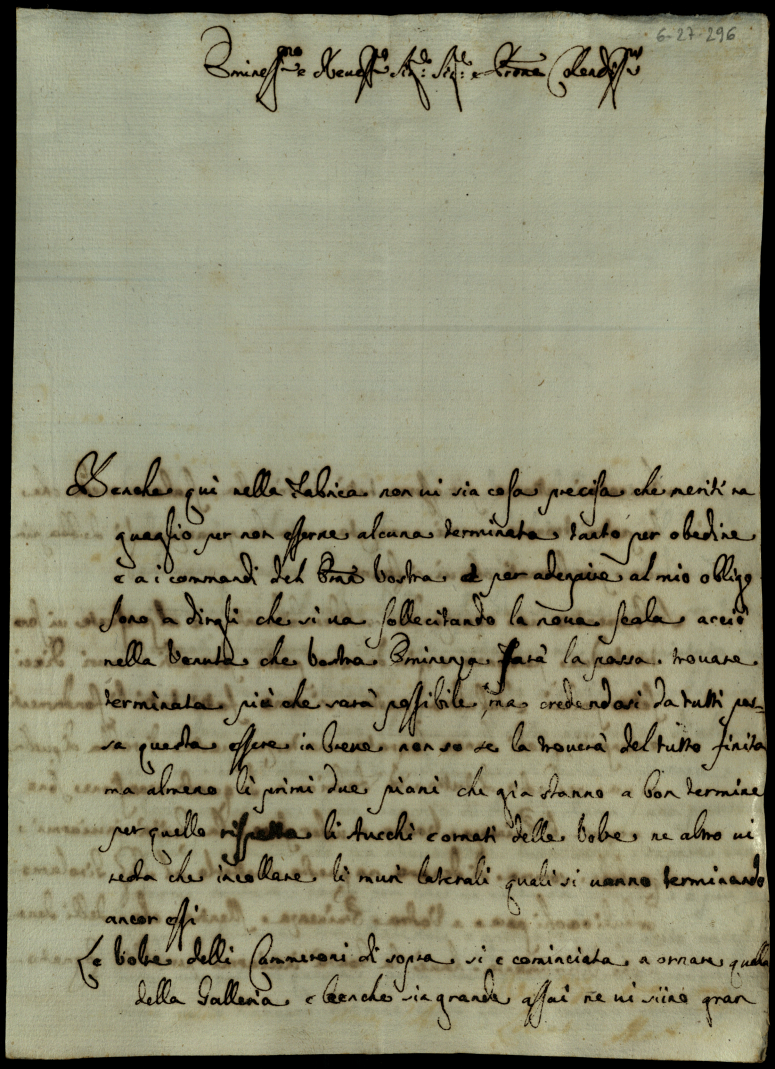 6-27-296
Eminess.mo e Reveress.mo Sig.r Sig.r e Prone Colendiss.mo
Benche qui nella fabrica non vi sia cosa precisa che meriti ra
guaglio per non esserne alcuna terminata tanto per obedire
e a i commandi del Emi Vostra e per adempire al mio obligo
sono a dirgli che si va sollecitando la nova scala acciò
nella venuta che Vostra Eminenza farà la possa trovare
terminata piè che sarà possibile, ma credendosi da tutti pos=
sa questa essere in breve non so se la troverà del tutto finita
ma almeno li primi due piani che gia stanno a bon termine
per quello rispetta li stucchi e ornati delle volte ne altro vi
resta che incollare li muri laterali quali si vanno terminando
ancor essi
Le volte delli Cammeroni di sopra si e cominciata a ornare quella
della Galleria e benchè sia grande assai ne vi siino gran